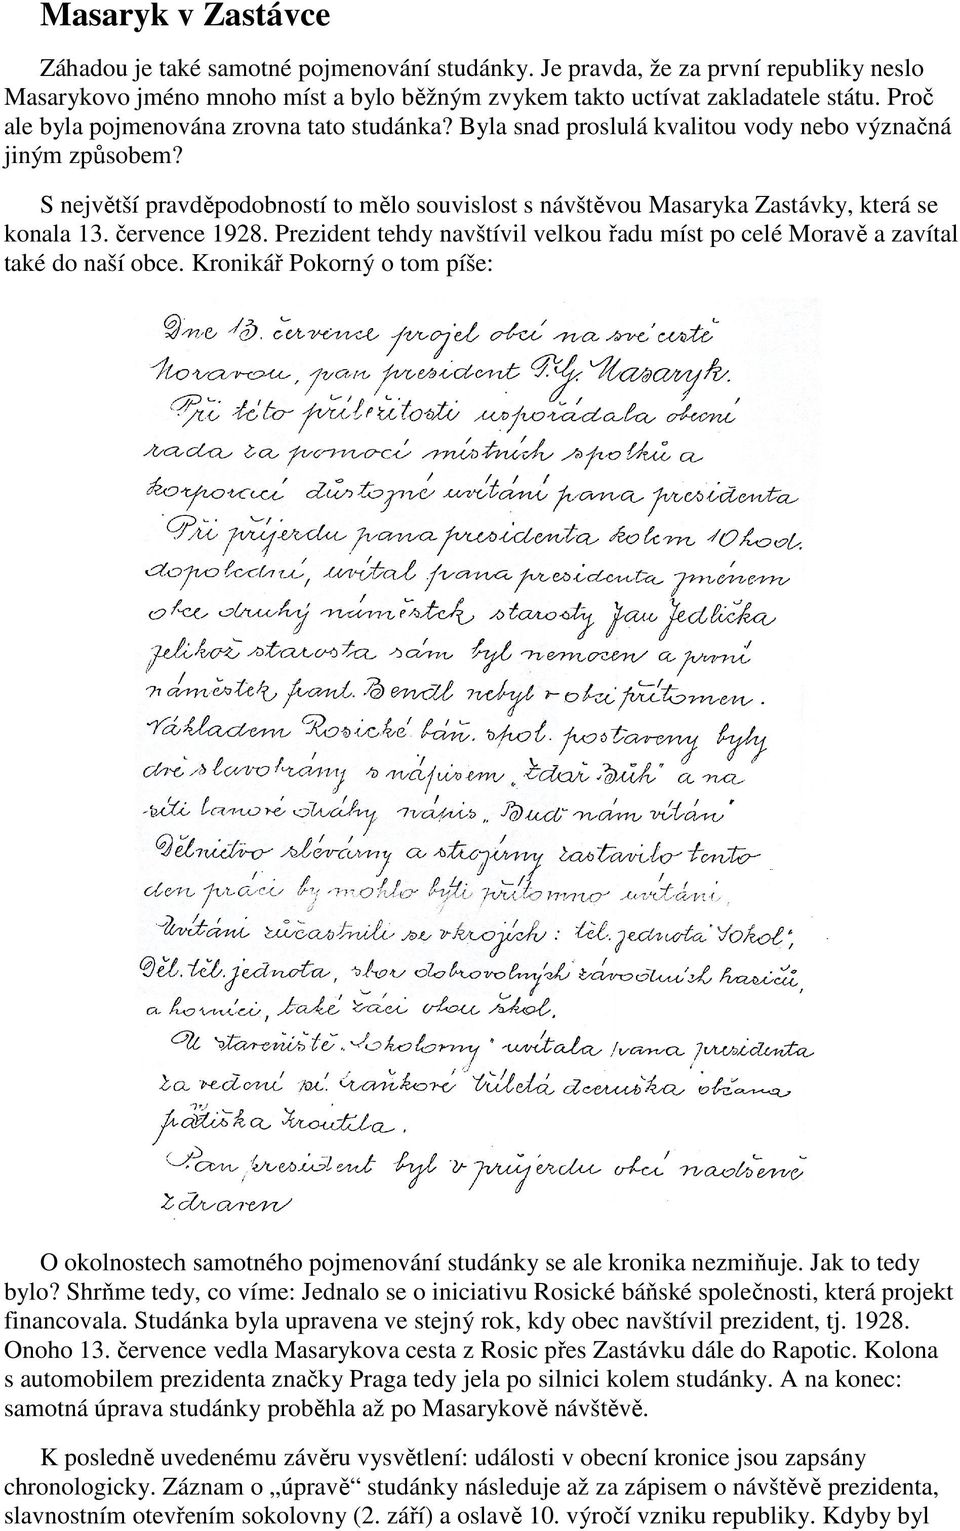 Masaryk v Zastávce
Záhadou je také samotné pojmenování studánky. Je pravda, že za první republiky neslo
Masarykovo jméno mnoho míst a bylo běžným zvykem takto uctívat zakladatele státu. Proč
ale byla pojmenována zrovna tato studánka? Byla snad proslulá kvalitou vody nebo význačná
jiným způsobem?
S největší pravděpodobností to mělo souvislost s návštěvou Masaryka Zastávky, která se
konala 13. července 1928. Prezident tehdy navštívil velkou řadu míst po celé Moravě a zavítal
také do naší obce. Kronikář Pokorný o tom píše:
Dne 13. července projel obcí na své cestě
Moravou, pan president T.G. Masaryk.
Při této příležitosti uspořádala obecní
rada za pomocí místních spolků a
korporací důstojné uvítání pana presidenta
Při příjezdu pana presidenta kolem 10 hod.
dopolední, uvítal pana presidenta jménem
obce druhý náměstek starosty Jan Jedlička
jelikož starosta sám byl nemocen a první
náměstek frant. Bendl nebyl v obci přítomen.
Nákladem Rosické báň. spol. postaveny byly
dvě slavobrány s nápisem „Zdař Bůh" a na
síti lanové dráhy nápis „Bud nám vítán"
Dělnictvo slévárny a strojírny zastavilo tento
den práci by mohlo býti přítomno uvítání.
Uvítání zůčastnili se v krojích: těl. jednota "Sokol",
Děl. těl. jednota, sbor dobrovolných závodních hasičů,
a horníci, také žáci obou škol.
U staveniště „Sokolovny" uvítala pana presidenta
za vedení pí. Vaňkové tříletá dceruška občana
Kroutila.
Pan president byl v průjezdu obcí nadšeně
zdraven
O okolnostech samotného pojmenování studánky se ale kronika nezmiňuje. Jak to tedy
bylo? Shrňme tedy, co víme: Jednalo se o iniciativu Rosické báňské společnosti, která projekt
financovala. Studánka byla upravena ve stejný rok, kdy obec navštívil prezident, tj. 1928.
Onoho 13. července vedla Masarykova cesta z Rosic přes Zastávku dále do Rapotic. Kolona
s automobilem prezidenta značky Praga tedy jela po silnici kolem studánky. A na konec:
samotná úprava studánky proběhla až po Masarykově návštěvě.
K posledně uvedenému závěru vysvětlení: události v obecní kronice jsou zapsány
chronologicky. Záznam o „úpravě“ studánky následuje až za zápisem o návštěvě prezidenta,
slavnostním otevřením sokolovny (2. září) a oslavě 10. výročí vzniku republiky. Kdyby byl